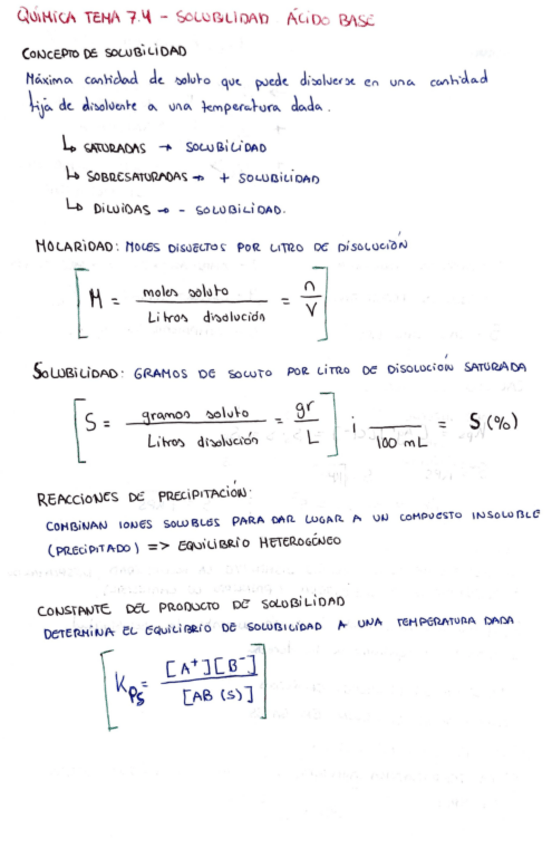 QUÍMICA TEMA 7.4 - SOLUBILIDAD ÁCIDO BASE
CONCEPTO DE SOLUBILIDAD
Máxima cantidad de soluto que puede disolverse en una cantidad
fija de disolvente a una temperatura dada.
↳ SATURADAS → SOLUBILIDAD
↳ SOBRESATURADAS → + SOLUBILIDAD
↳ DILUIDAS → - SOLUBILIDAD.
MOLARIDAD: MOLES DISUELTOS POR LITRO DE DISOLUCIÓN
[M = moles soluto / Litros disolución = n / V]
SOLUBILIDAD: GRAMOS DE SOLUTO POR LITRO DE DISOLUCIÓN SATURADA
[S = gramos soluto / Litros disolución = gr / L] ; / 100 mL = S (%)
REACCIONES DE PRECIPITACIÓN:
COMBINAN IONES SOLUBLES PARA DAR LUGAR A UN COMPUESTO INSOLUBLE
(PRECIPITADO) => EQUILIBRIO HETEROGÓNEO
CONSTANTE DEL PRODUCTO DE SOLUBILIDAD
DETERMINA EL EQUILIBRIO DE SOLUBILIDAD A UNA TEMPERATURA DADA
[Kps = [A⁺][B⁻] / [AB (s)]]